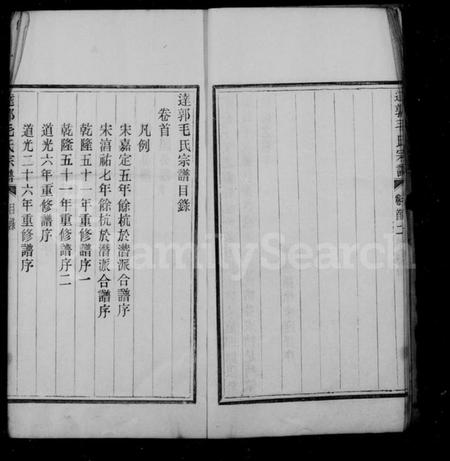 達郭毛氏宗譜
達郭毛氏宗譜目錄
卷首
凡例
宋嘉定五年餘杭於潛派合譜序
宋淳祐七年餘杭於潛派合譜序
乾隆五十一年重修譜序一
乾隆五十一年重修譜序二
道光六年重修譜序
道光二十六年重修譜序
達郭毛氏宗譜
目錄
FamilySearch